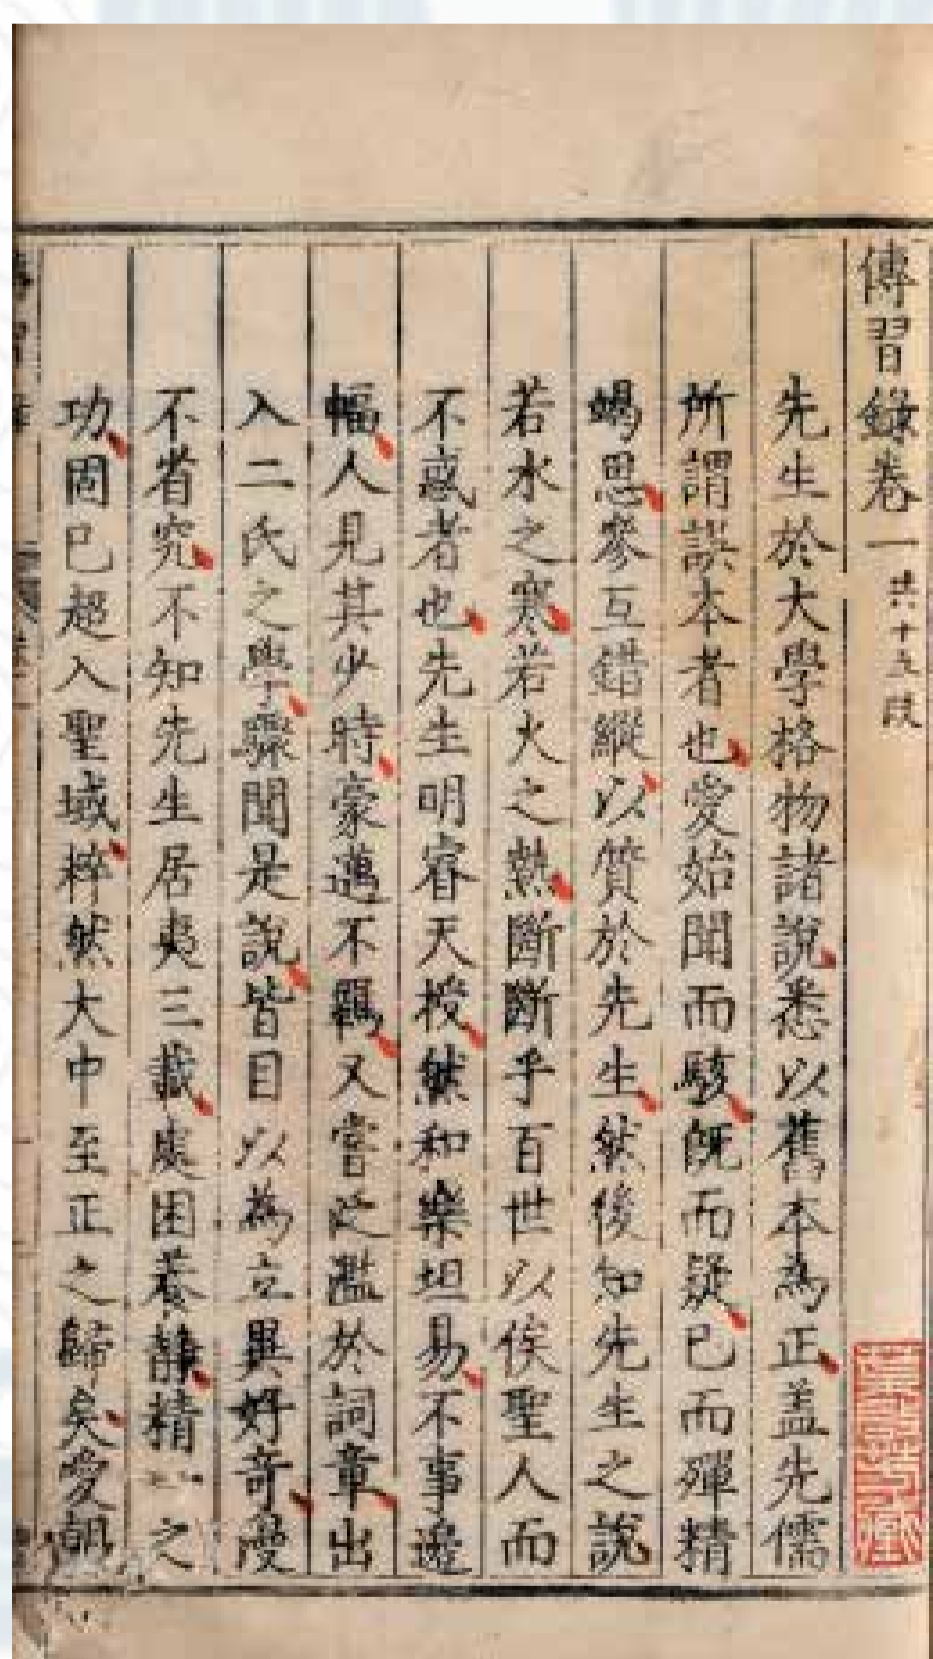 傳習錄卷一 共十五段
先生於大學格物諸說悉以舊本為正盖先儒
所謂誤本者也愛始聞而駭旣而疑已而殫精
竭思參互錯縱以質於先生然後知先生之說
若水之寒若火之熱斷斷乎百世以俟聖人而
不惑者也先生明睿天授然和樂坦易不事邊
幅人見其少時豪邁不羈又嘗泛濫於詞章出
入二氏之學驟聞是說皆目以為立異好奇漫
不省究不知先生居夷三載處困養靜精一之
功固已超入聖域粹然大中至正之歸矣愛朝